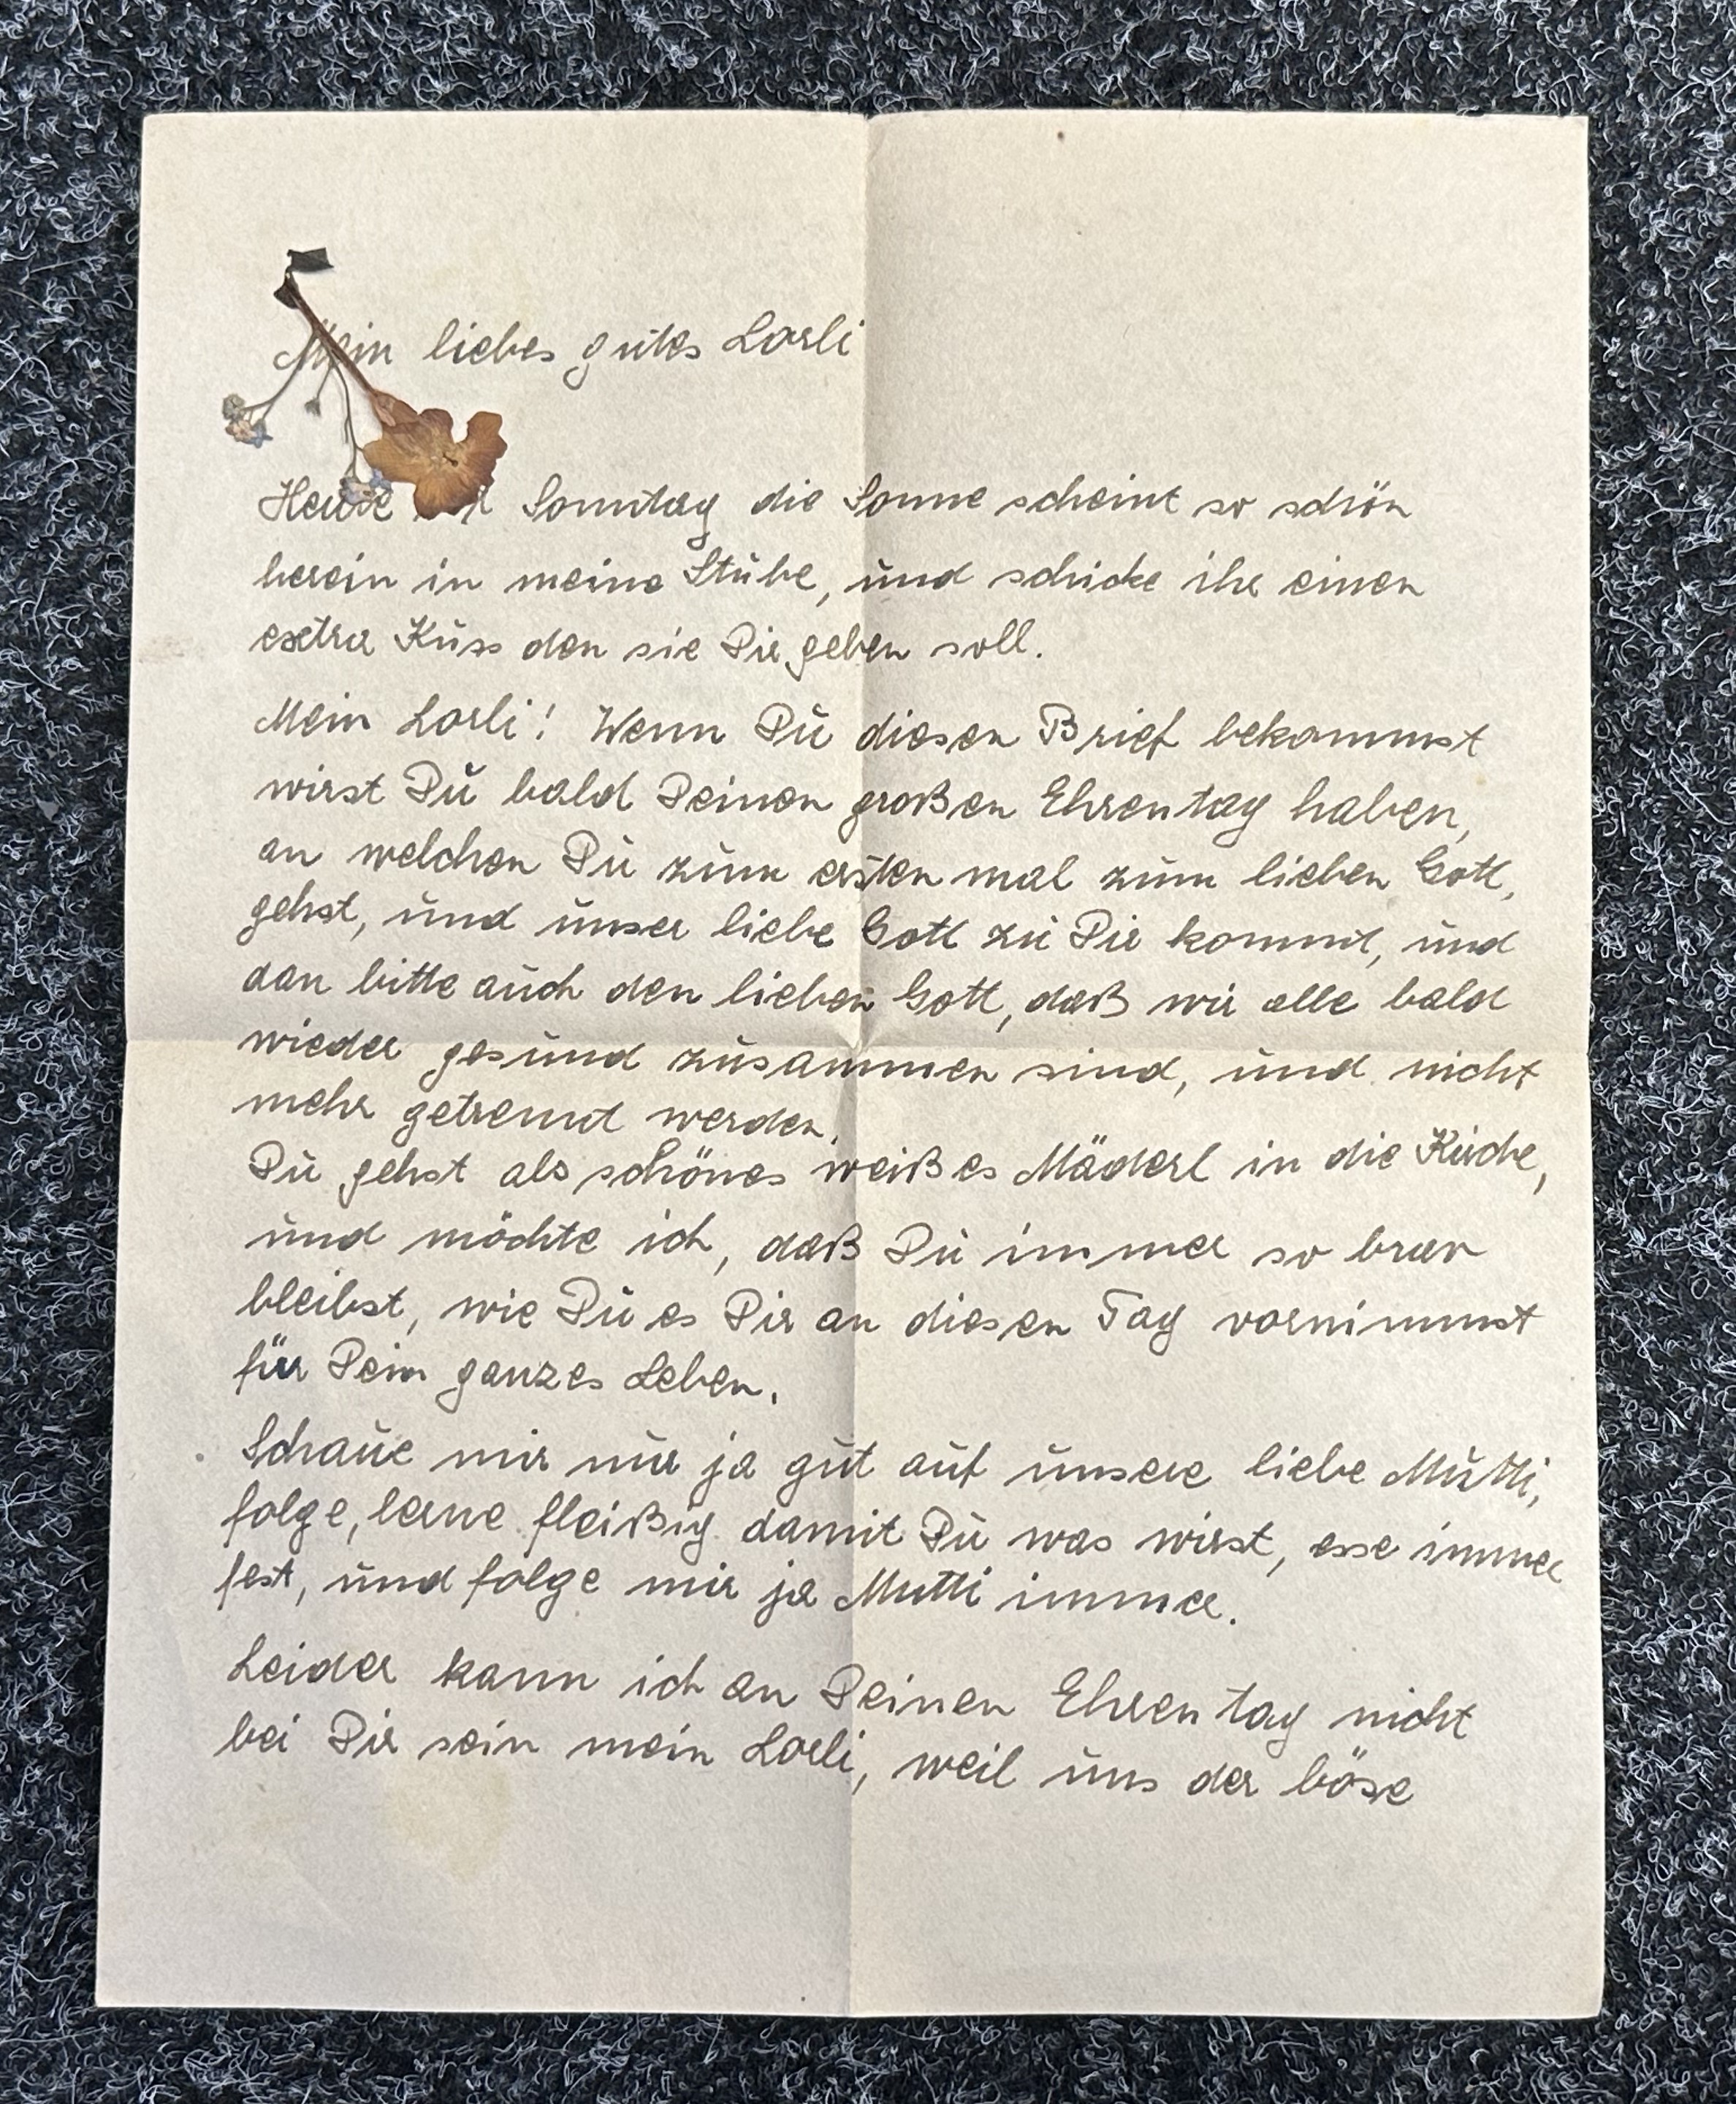 Mein liebes gutes Lorli
Heute ist Sonntag die Sonne scheint so schön
herein in meine Stube, und schicke ihr einen
extra Kuss den sie Dir geben soll.
Mein Lorli! Wenn Du diesen Brief bekommst
wirst Du bald Deinen großen Ehrentag haben,
an welchen Du zum ersten mal zum lieben Gott,
gehst, und unser liebe Gott zu Dir kommt, und
dan bitte auch den lieben Gott, daß wir alle bald
wieder gesund zusammen sind, und nicht
mehr getrennt werden.
Du gehst als schönes weißes Mäderl in die Kirche,
und möchte ich, daß Du immer so brav
bleibst, wie Du es Dir an diesen Tag vornimmst
für Dein ganzes Leben.
Schaue mir nur ja gut auf unsere liebe Mutti,
folge, lerne fleißig damit Du was wirst, esse immer
fest, und folge mir ja Mutti immer.
Leider kann ich an Deinen Ehrentag nicht
bei Dir sein mein Lorli, weil uns der böse